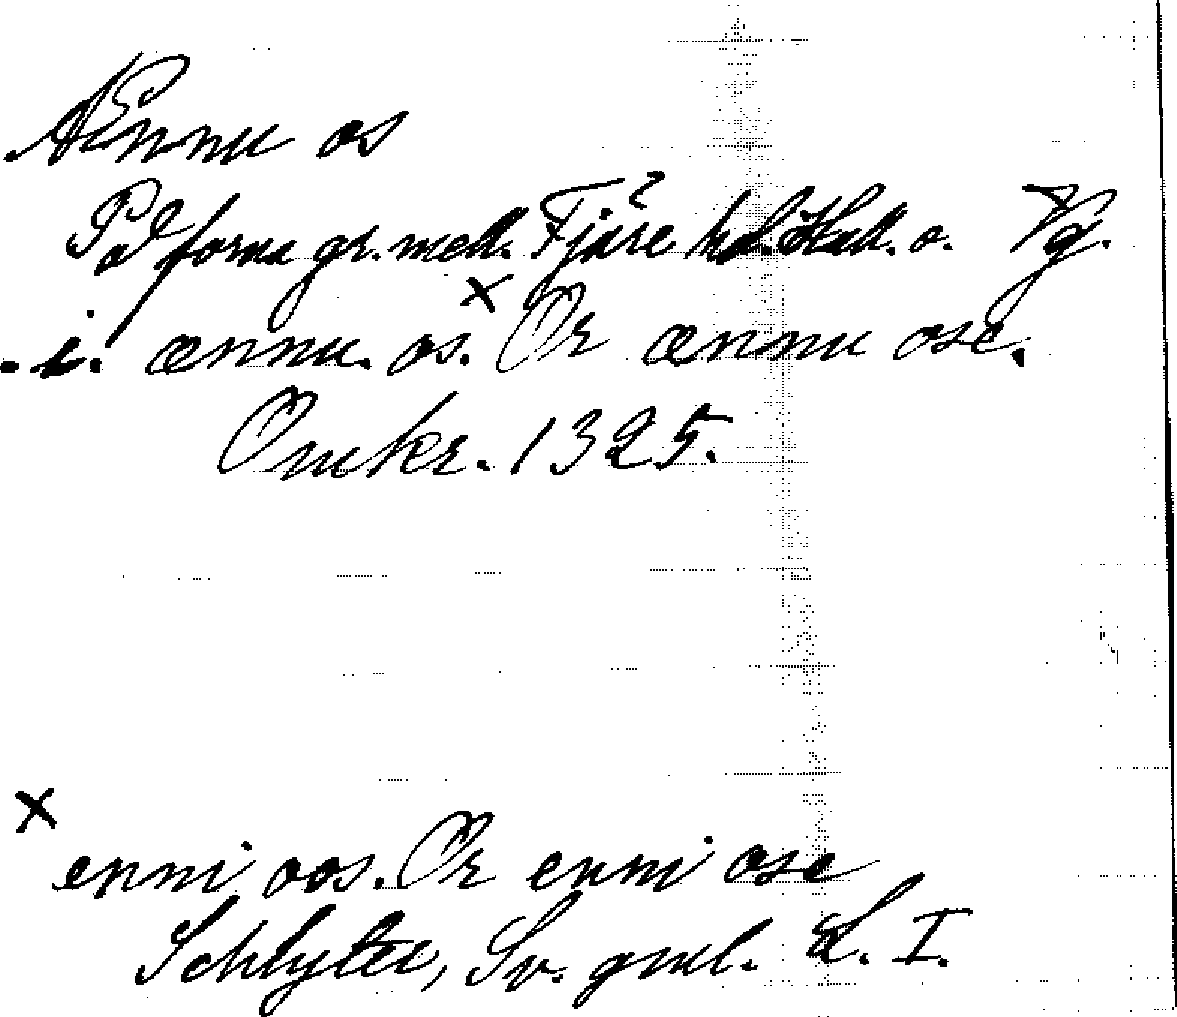 Ænnu os
På forna gr. mell. Fjäre hd. Hall. o. Vg.
.i. ænnu. os.× Or ænnu ose.
Omkr. 1325.
×
enni oos. Or enni ose
Schlyter, Sv. gml. L. I.